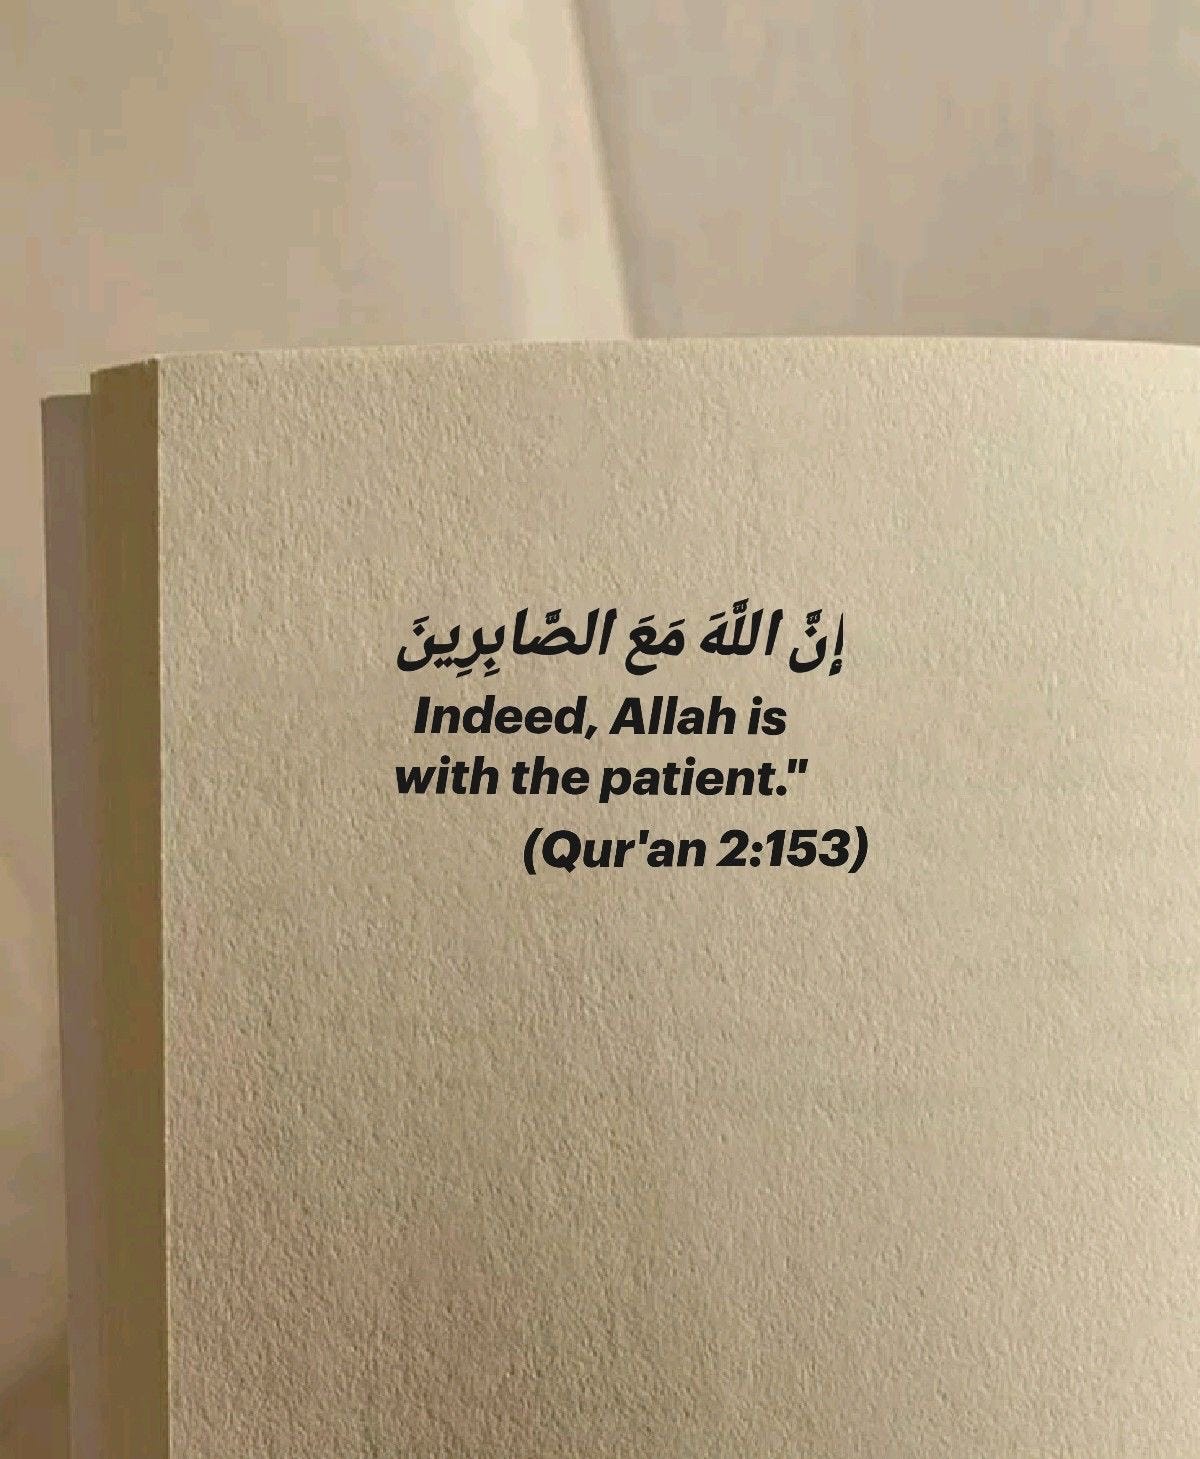 إِنَّ اللَّهَ مَعَ الصَّابِرِينَ
Indeed, Allah is
with the patient."
(Qur'an 2:153)